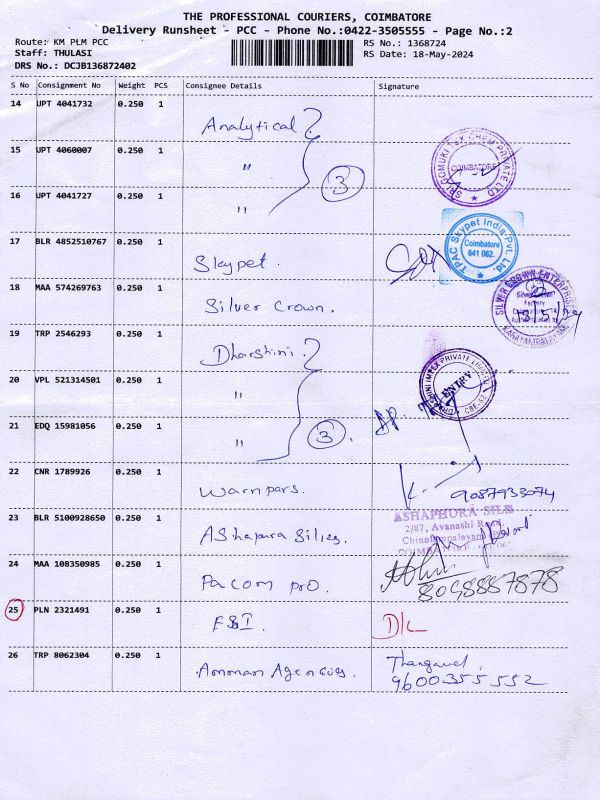 THE PROFESSIONAL COURIERS, COIMBATORE
Delivery Runsheet - PCC - Phone No.:0422-3505555 - Page No.:2
Route: KM PLM PCC RS No.: 1368724
Staff: THULASI RS Date: 18-May-2024
DRS No.: DCJB136872402
S No Consignment No Weight PCS Consignee Details Signature
14 UPT 4041732 0.250 1 Analytical
15 UPT 4060007 0.250 1 "
SRI GOMUKI TEX CHEM PRIVATE LTD
COIMBATORE
3
16 UPT 4041727 0.250 1 "
17 BLR 4852510767 0.250 1 Skypet.
TPAC Skypet India Pvt. Ltd.
Coimbatore
641 062.
18 MAA 574269763 0.250 1 Silver Crown.
SILVER CROWN ENTERPRISES
18/5/24
19 TRP 2546293 0.250 1 Dharshini
20 VPL 521314501 0.250 1 "
IMPEX PRIVATE LIMITED
ENTRY
21 EDQ 15981056 0.250 1 "
3
22 CNR 1789926 0.250 1 Warnpars. 9087933074
23 BLR 5100928650 0.250 1 AShapura Silies.
ASHAPHURA
2/87, Avanashi Road,
24 MAA 108350985 0.250 1 Pacom pro. 8098887878
25 PLN 2321491 0.250 1 FSI. D/L
26 TRP 8062304 0.250 1 Amman Agencies. Thangavel.
9600355552